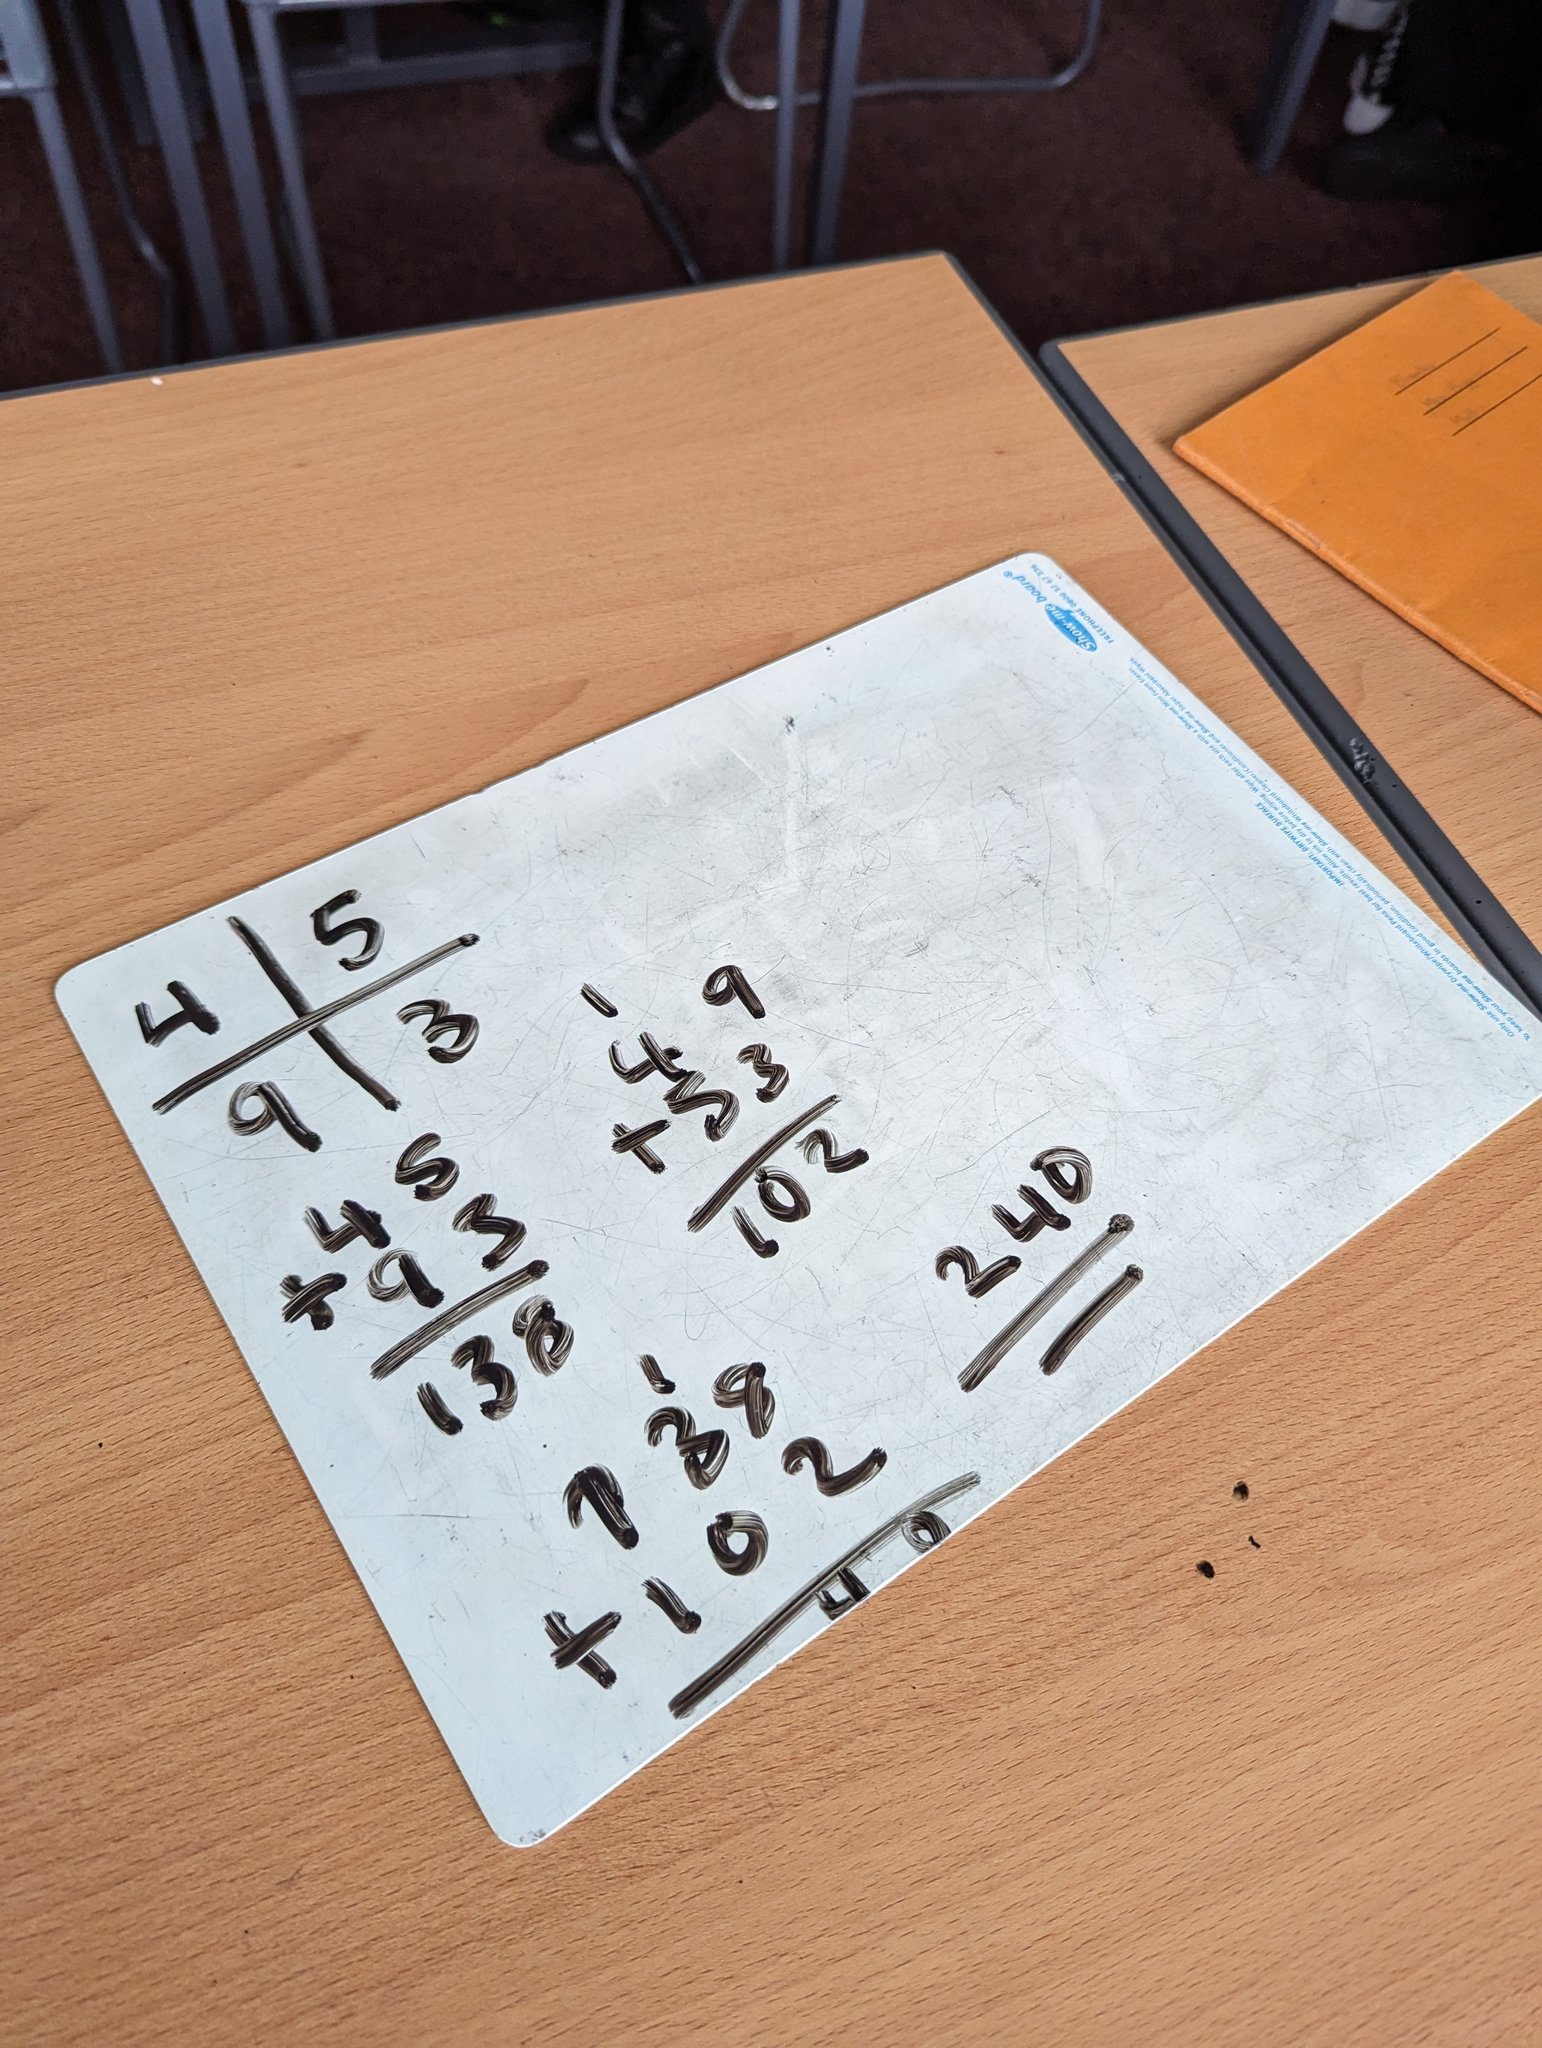 4 5
9 3
1
4 9
+ 5 3
102
4 5
+ 9 3
138
1
1 3 8
+ 1 0 2
4 0
240
Show-me board®
FREEPHONE 0800 37 67 236
IMPORTANT: DRYWIPE SURFACE
Only use Show-me Drywipe/Whiteboard Pens for best results. Allow ink to dry before wiping. Wipe after each use with a Show-me Mini Foam Eraser.
To keep your Show-me boards in good condition, periodically clean with Show-me Whiteboard Cleaner/Conditioner and Show-me Super Absorbent Wipes.